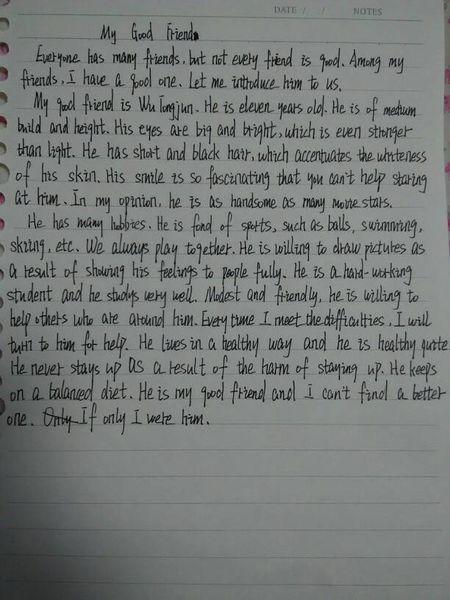 DATE / / NOTES
My Good Friend
Everyone has many friends, but not every friend is good. Among my
friends, I have a good one. Let me introduce him to us.
My good friend is Wu Tongjun. He is eleven years old. He is of medium
build and height. His eyes are big and bright, which is even stronger
than light. He has short and black hair, which accentuates the whiteness
of his skin. His smile is so fascinating that you can't help staring
at him. In my opinion, he is as handsome as many movie stars.
He has many hobbies. He is fond of sports, such as balls, swimming,
skiing, etc. We always play together. He is willing to draw pictures as
a result of showing his feelings to people fully. He is a hard-working
student and he studys very well. Modest and friendly, he is willing to
help others who are around him. Every time I meet the difficulties, I will
turn to him for help. He lives in a healthy way and he is healthy quite
He never stays up as a result of the harm of staying up. He keeps
on a balanced diet. He is my good friend and I can't find a better
one. If only I were him.